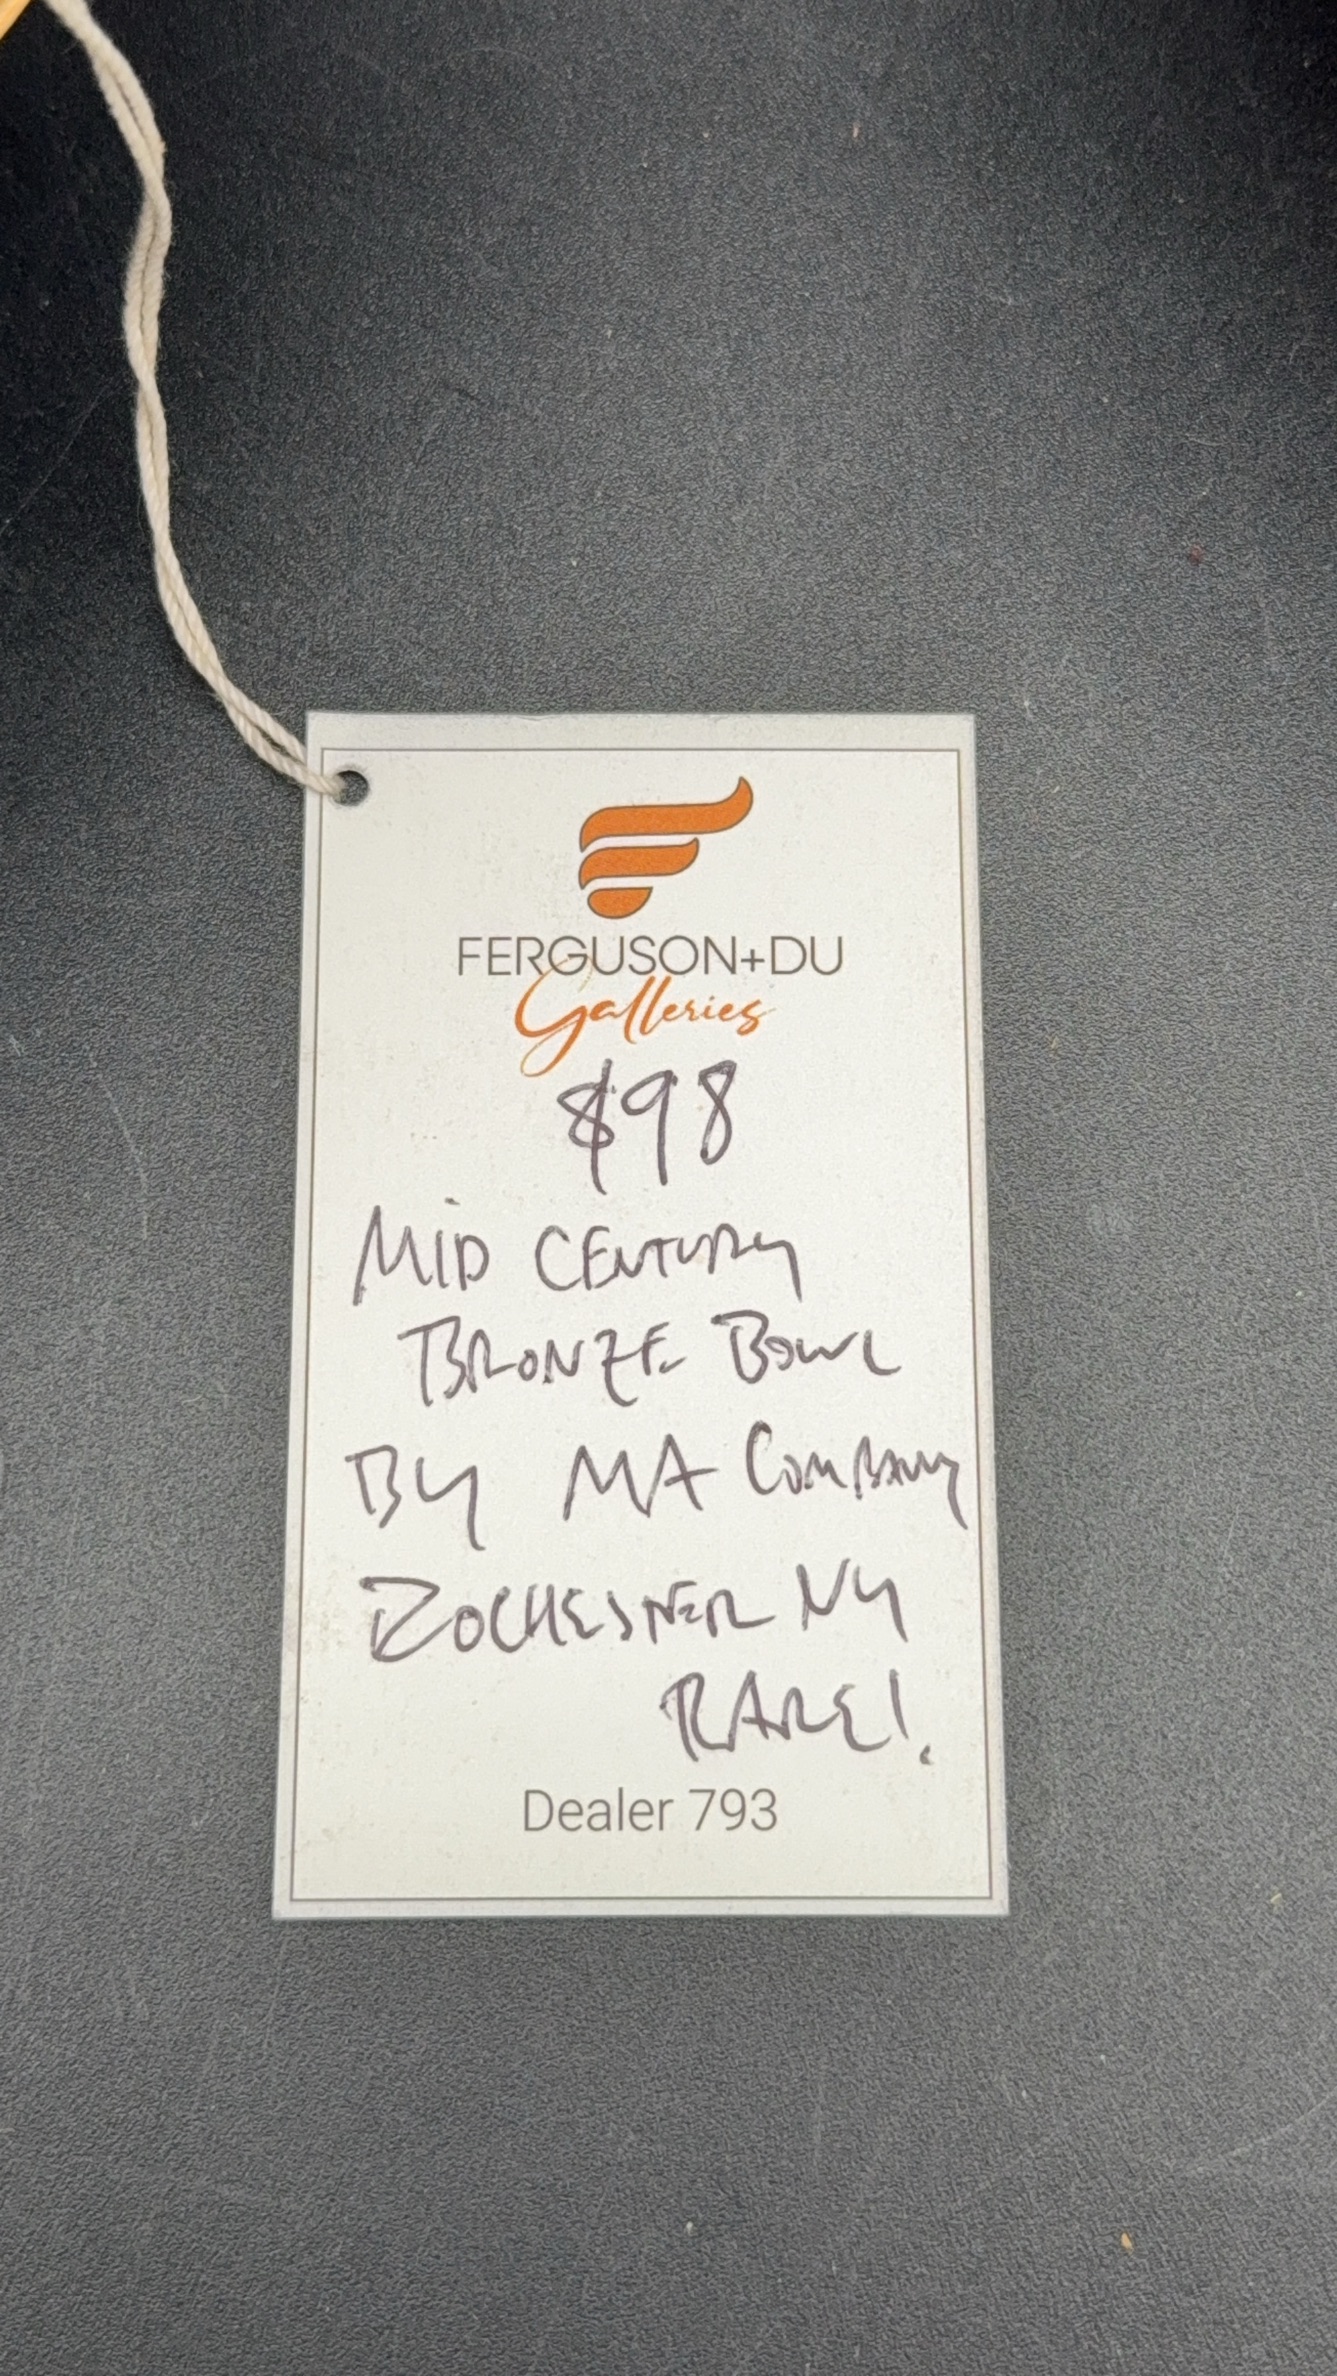 FERGUSON+DU
Galleries
$98
MID CENTURY
BRONZE BOWL
BY MA COMPANY
ROCHESTER NY
RARE!
Dealer 793